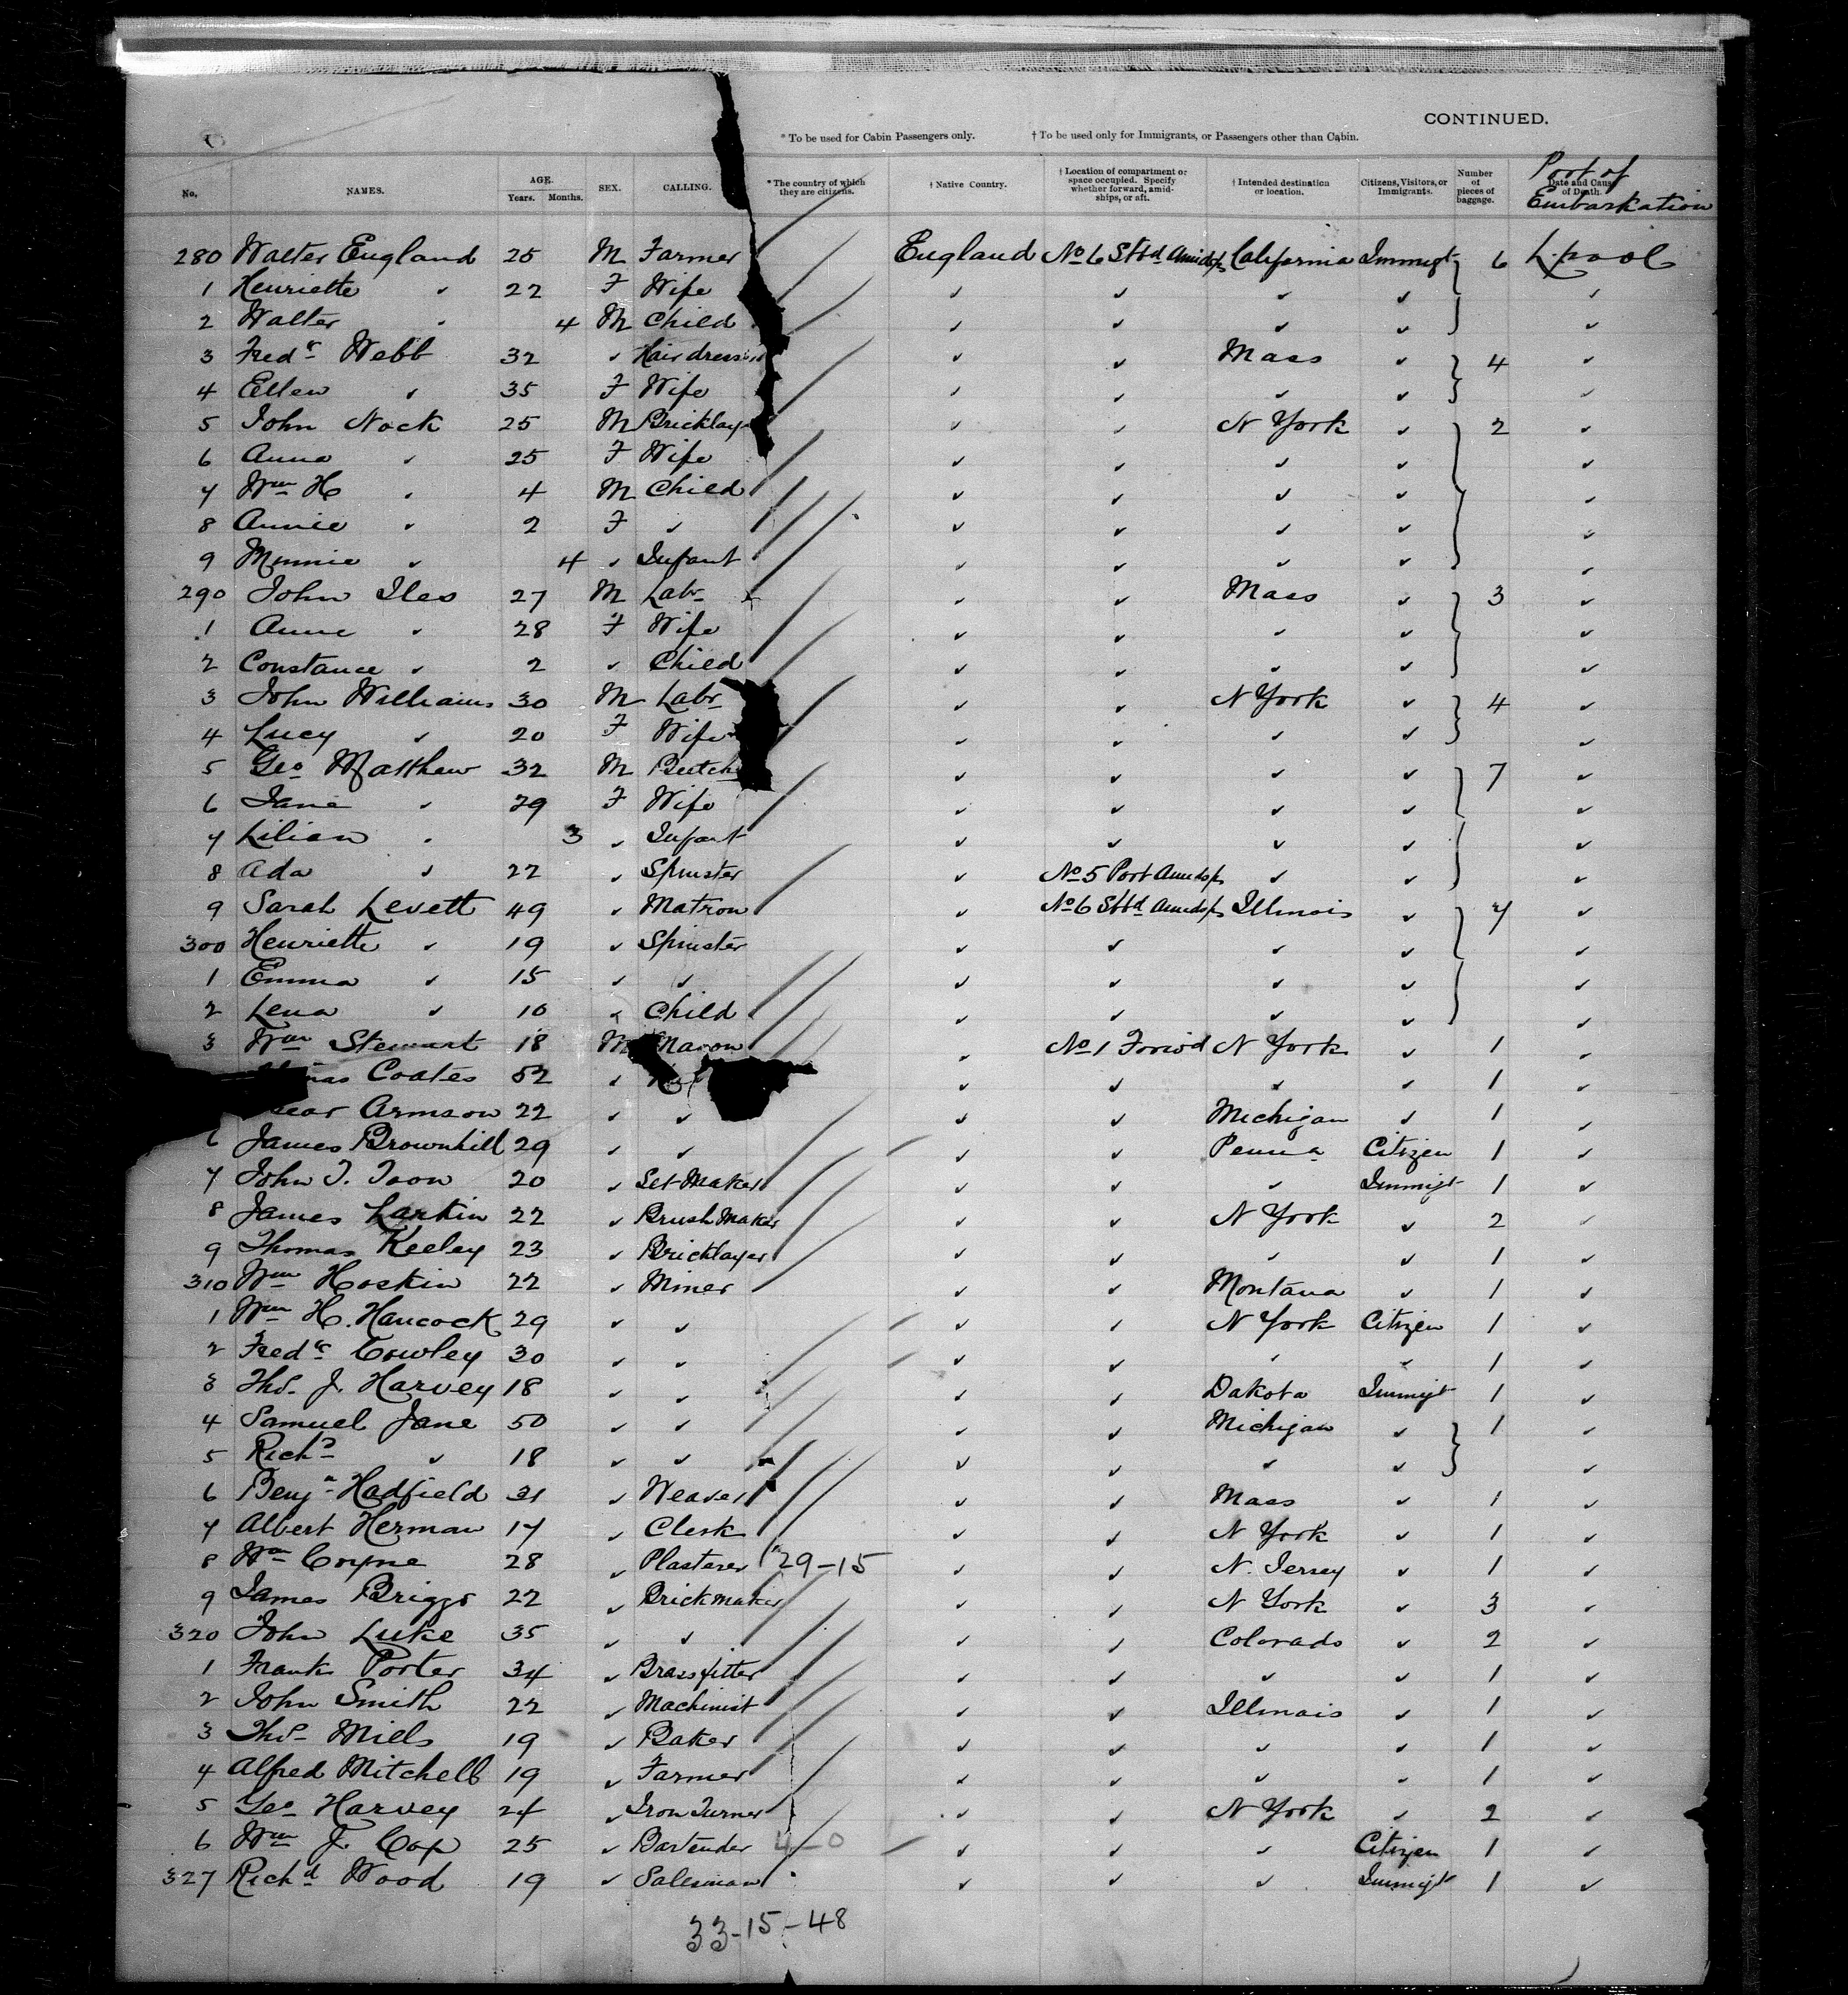 CONTINUED.
* To be used for Cabin Passengers only. † To be used only for Immigrants, or Passengers other than Cabin.
No. NAMES. AGE. Years. Months. SEX. CALLING. * The country of which they are citizens. † Native Country. † Location of compartment or space occupied. Specify whether forward, amid-ships, or aft. † Intended destination or location. Citizens, Visitors, or Immigrants. Number of pieces of baggage. Date and Cause of Death. Port of Embarkation
280 Walter England 25 M Farmer England No 6 Stbd Amidsps California Immigt 6 L.pool
1 Henriette " 22 F Wife " " " " "
2 Walter " 4 M Child " " " " "
3 Fredk Webb 32 " Hairdress " " Mass " 4 "
4 Ellen " 35 F Wife " " " " "
5 John Nock 25 M Bricklay " " N York " 2 "
6 Anna " 25 F Wife " " " " "
7 Wm H " 4 M Child " " " " "
8 Annie " 2 F " " " " " "
9 Minnie " 4 " Infant " " " " "
290 John Iles 27 M Labr " " Mass " 3 "
1 Anne " 28 F Wife " " " " "
2 Constance " 2 " Child " " " " "
3 John Williams 30 M Labr " " N York " 4 "
4 Lucy " 20 F Wife " " " " "
5 Geo Matthew 32 M Butch " " " " 7 "
6 Jane " 29 F Wife " " " " "
7 Lilian " 3 " Infant " " " " "
8 Ada " 22 " Spinster " No 5 Port Amidsps " " "
9 Sarah Levett 49 " Matron " No 6 Stbd Amidsps Illinois " 7 "
300 Henriette " 19 " Spinster " " " " "
1 Emma " 15 " " " " " " "
2 Lena " 10 " Child " " " " "
3 Wm Stewart 18 M Mason " No 1 Forwd N York " 1 "
Coates 52 " " " " " 1 "
Armson 22 " " " " Michigan " 1 "
6 James Brownhill 29 " " " " Penna Citizen 1 "
7 John T. Toon 20 " Set Maker " " " Immigt 1 "
8 James Larkin 22 " Brush Maker " " N York " 2 "
9 Thomas Keeley 23 " Bricklayer " " " " 1 "
310 Wm Hoskin 22 " Miner " " Montana " 1 "
1 Wm H. Hancock 29 " " " " N York Citizen 1 "
2 Fredk Cowley 30 " " " " " " 1 "
3 Thos. J. Harvey 18 " " " " Dakota Immigt 1 "
4 Samuel Jane 50 " " " " Michigan " 1 "
5 Richd " 18 " " " " " " "
6 Benjn Hadfield 31 " Weaver " " Mass " 1 "
7 Albert Herman 17 " Clerk " " N York " 1 "
8 Wm Coyne 28 " Plasterer 29-15 " " N. Jersey " 1 "
9 James Briggs 22 " Brickmaker " " N York " 3 "
320 John Luke 35 " " " " Colorado " 2 "
1 Frank Porter 34 " Brassfitter " " " " 1 "
2 John Smith 22 " Machinist " " Illinois " 1 "
3 Thos Mills 19 " Baker " " " " 1 "
4 Alfred Mitchell 19 " Farmer " " " " 1 "
5 Geo Harvey 24 " Iron Turner " " N York " 2 "
6 Wm J. Cox 25 " Bartender 4-0 " " " Citizen 1 "
327 Richd Wood 19 " Salesman " " " Immigt 1 "
33-15-48